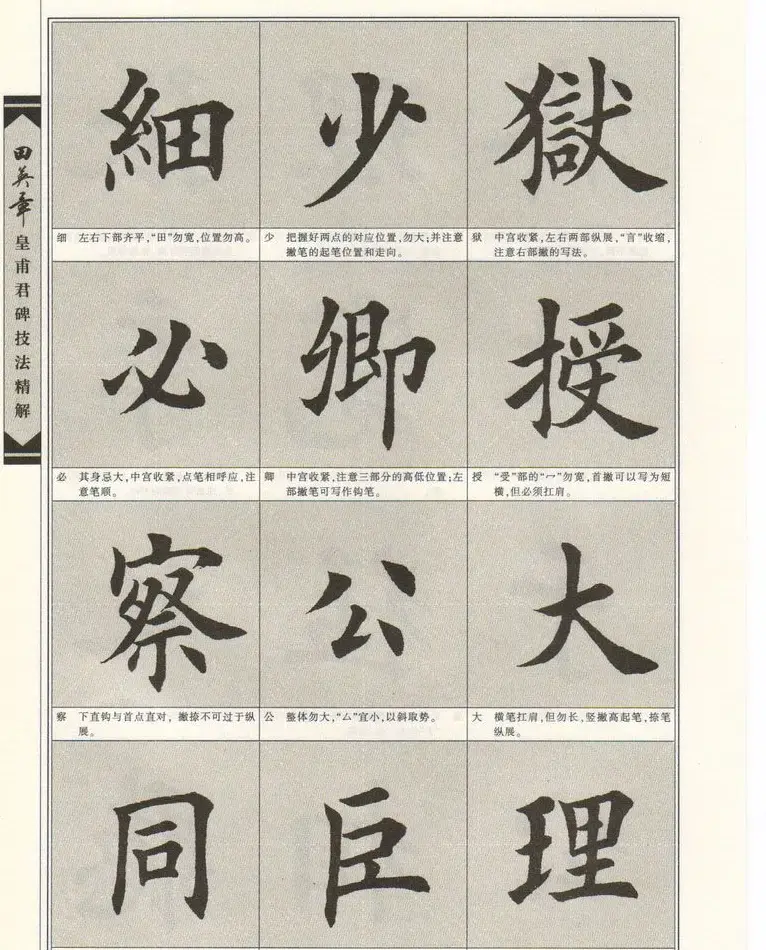 田英章
皇甫君碑技法精解
細 少 獄
细 左右下部齐平，“田”勿宽，位置勿高。
少 把握好两点的对应位置，勿大；并注意
撇笔的起笔位置和走向。
獄 中宫收紧，左右两部纵展，“言”收缩，
注意右部撇的写法。
必 卿 授
必 其身忌大，中宫收紧，点笔相呼应，注
意笔顺。
卿 中宫收紧，注意三部分的高低位置；左
部撇笔可写作钩笔。
授 “受”部的“冖”勿宽，首撇可以写为短
横，但必须扛肩。
察 公 大
察 下直钩与首点直对，撇捺不可过于纵
展。
公 整体勿大，“厶”宜小，以斜取势。
大 横笔扛肩，但勿长，竖撇高起笔，捺笔
纵展。
同 臣 理